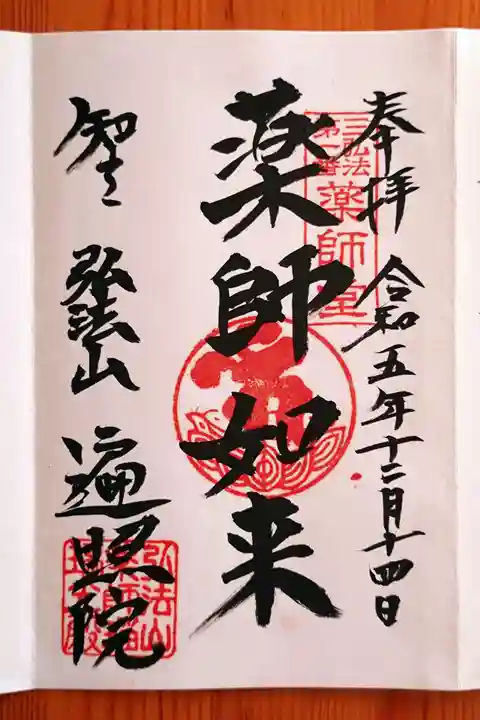 奉拝 令和五年十二月十四日
三弘法
第一番
薬師堂
薬師如来
知立 弘法山 遍照院
弘法山